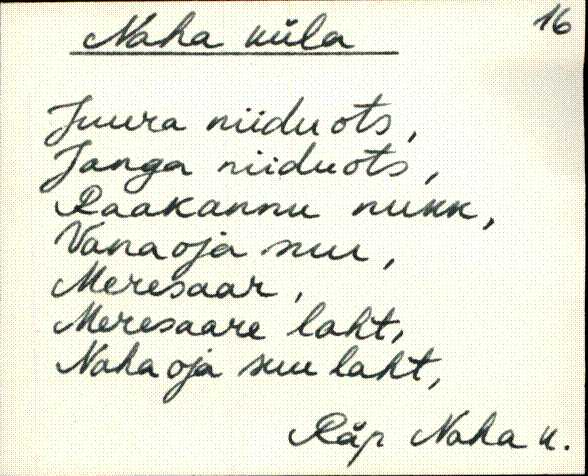 16
Naha küla
Juura niidu ots,
Janga niidu ots,
Raakannu nukk,
Vanaoja suu,
Meresaar,
Meresaare laht,
Naha oja suu laht,
Räp Naha k.